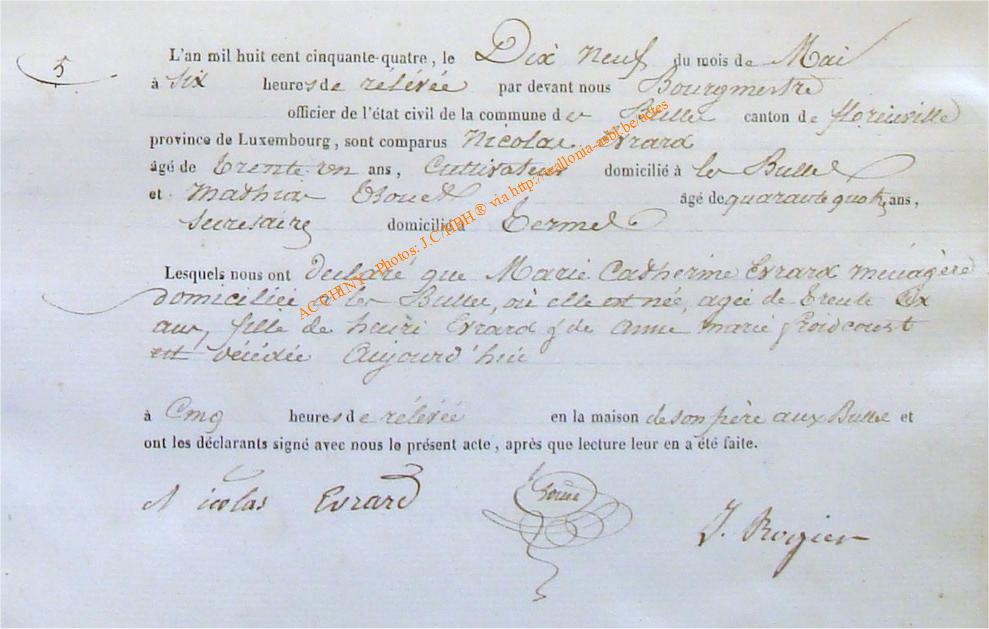 5
L'an mil huit cent cinquante-quatre, le Dix neuf du mois de Mai
à Six heures de rélévée par devant nous Bourgmestre
officier de l'état civil de la commune d canton de florenville
province de Luxembourg, sont comparus Nicolas Evrard
âgé de trente un ans, Cultivateur domicilié à les Bulles
et Mathias âgé de quarante ans,
Secretaire domicilié à Termes
Lesquels nous ont declaré que Marie Catherine Evrard ménagère
domiciliée les Bulles, où elle est née, agée de trente six
ans, fille de henri Evrard & de anne marie
est décédée Aujourd'hui
à Cinq heures de rélévée en la maison de son père aux Bulles et
ont les déclarants signé avec nous le présent acte, après que lecture leur en a été faite.
Nicolas Evrard
J. Rogier
AC CHINY - Photos: J.C. HBH® via http://wallonia-asbl.be/actes